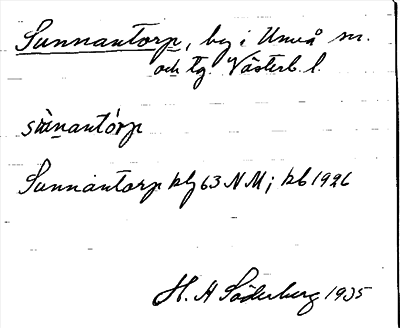 Sunnantorp, by i Umeå sn.
och tg. Västerb. l.
sànantórp
Sunnantorp blg 63 NM; kb 1926
H. A Söderberg 1935